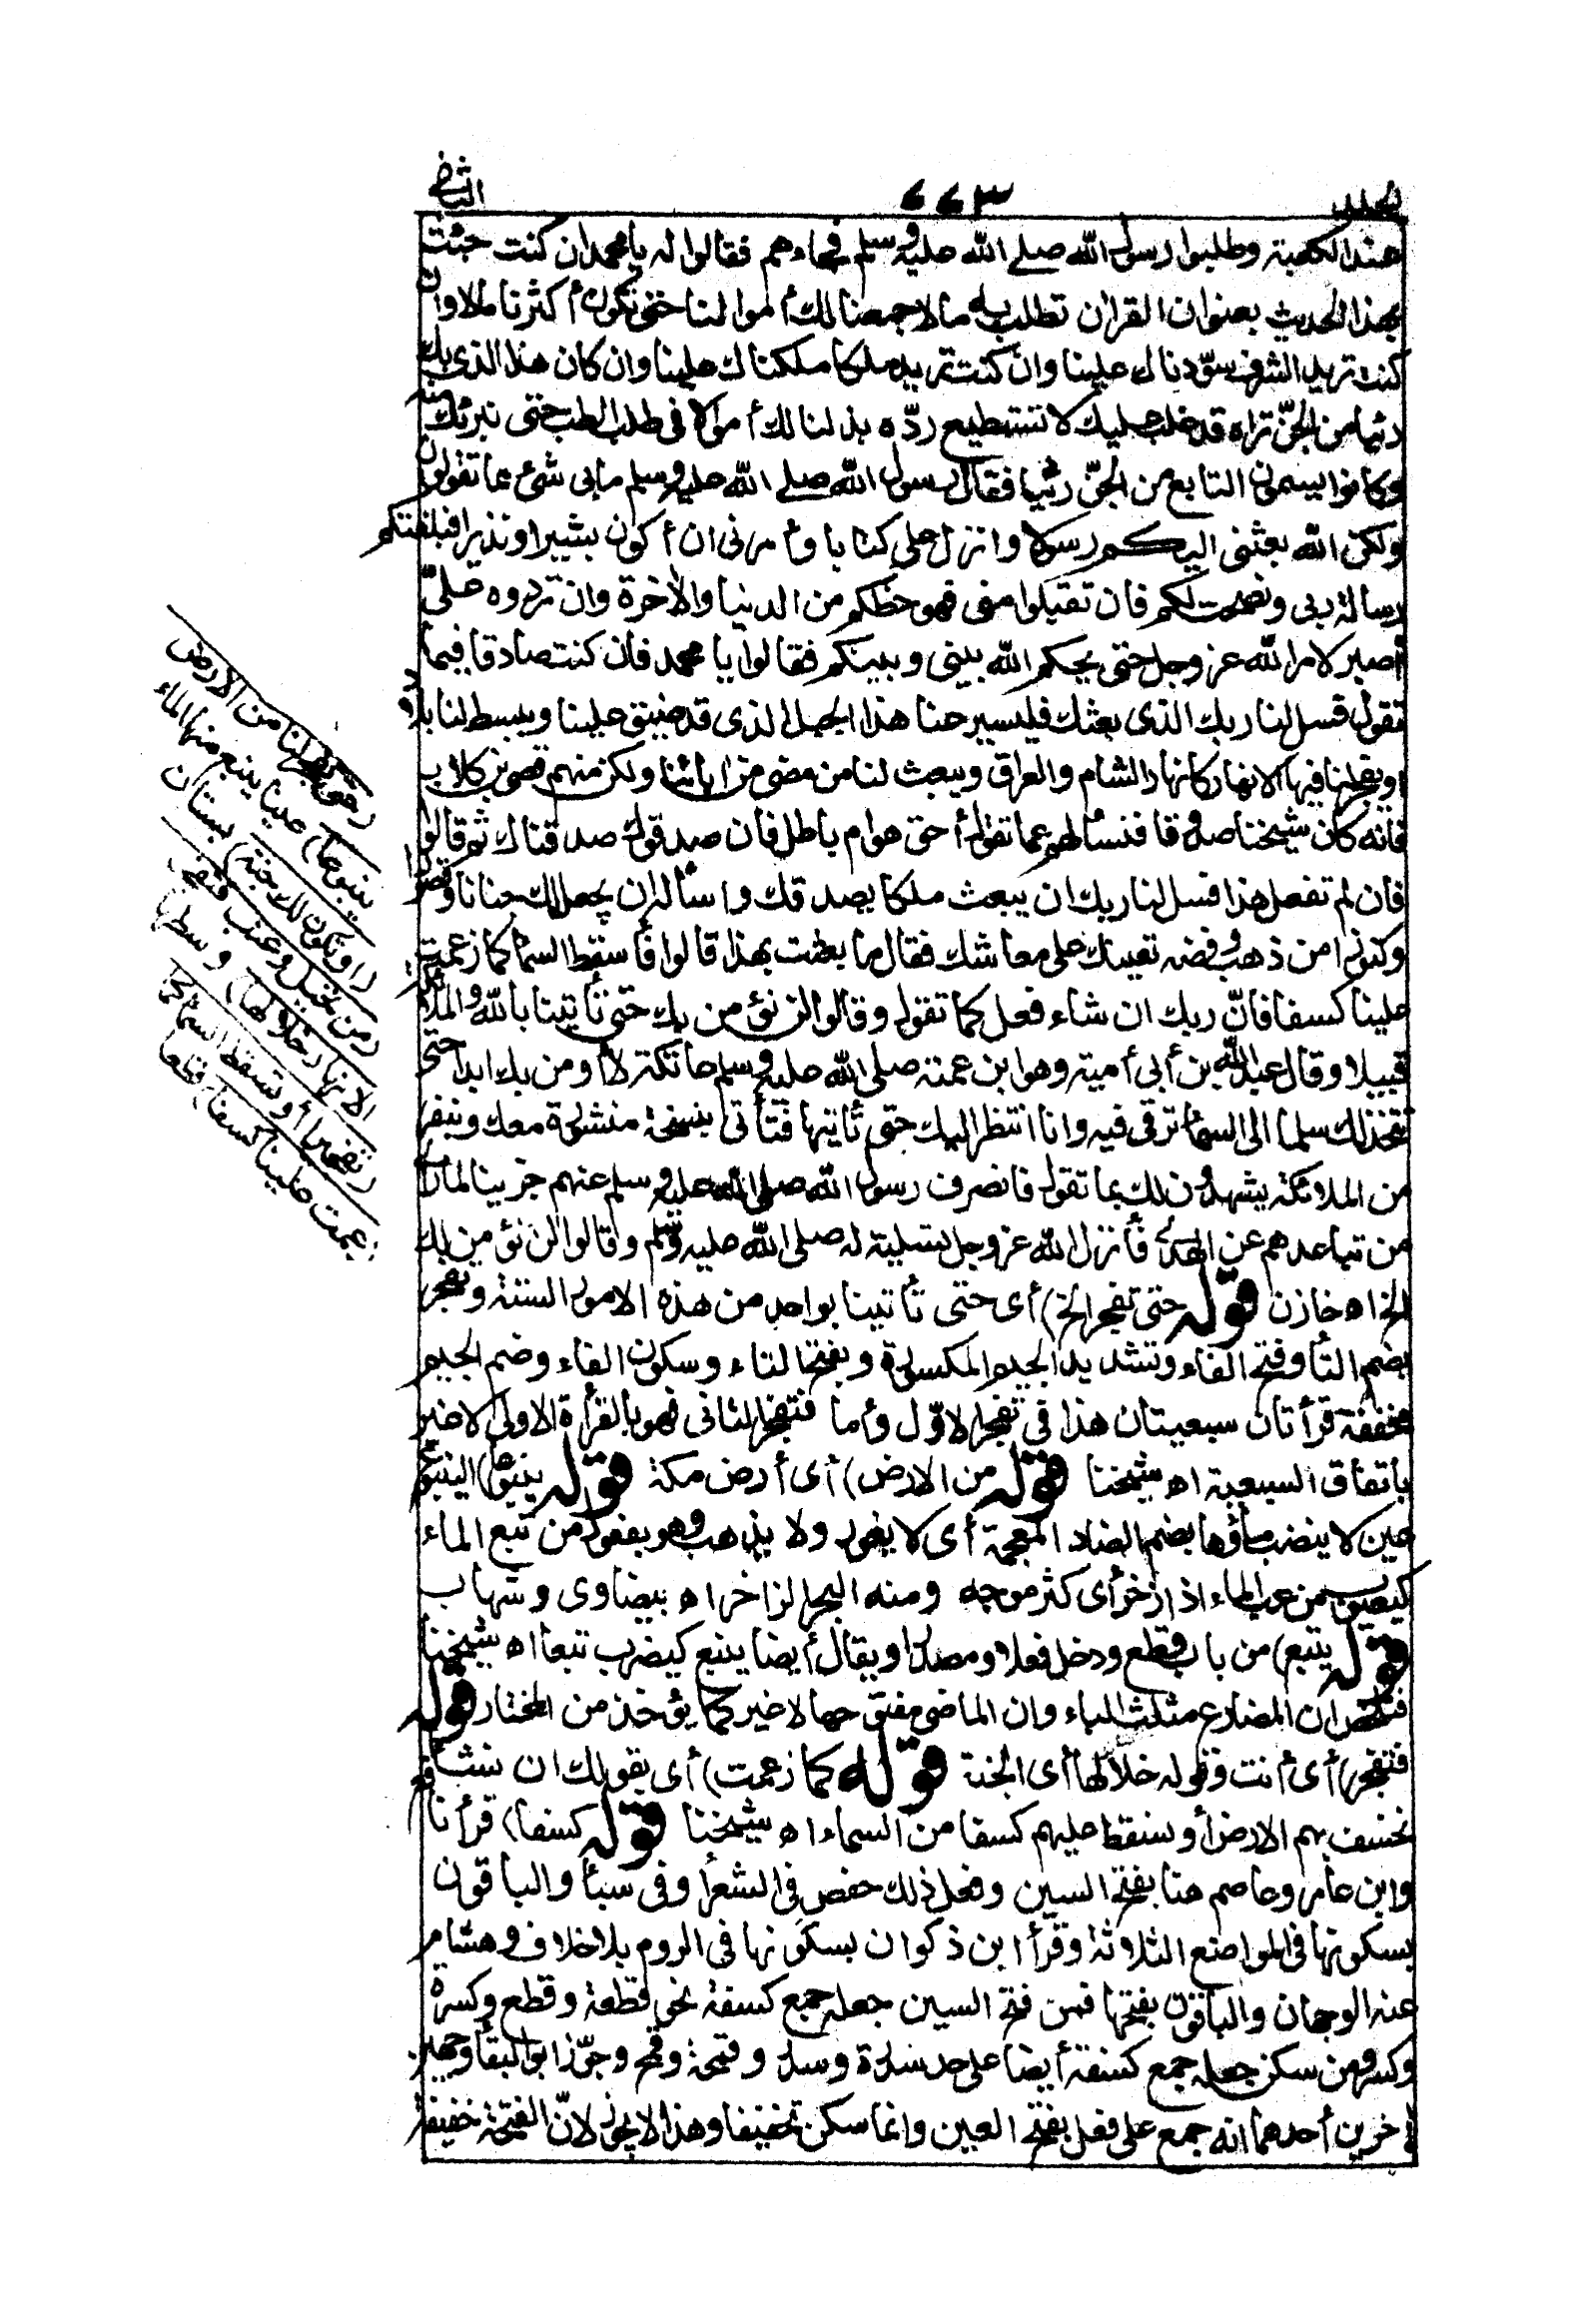 المجلد ٦٦٣ الثانى
عند الكعبة وطلبوا رسول الله صلى الله عليه وسلم فجاءهم فقالوا له يا محمد ان كنت جئت
بهذا الحديث بعنوان القرآن تطلب به مالا جمعنا لك أموالنا حتى تكون أكثرنا مالا وان
كنت تريد الشرف سوّدناك علينا وان كنت تريد ملكا ملكناك علينا وان كان هذا الذى بك
رئيا من الجنّ تراه قد غلب عليك لا تستطيع ردّه بذلنا لك أموالا فى طلب الطب حتى نبرئك منه
وكانوا يسمون التابع من الجنّ رئيا فقال رسول الله صلى الله عليه وسلم مابى شئ مما تقولون
ولكن الله بعثنى اليكم رسولا وانزل على كتابا وأمرنى ان أكون بشيرا ونذيرا فبلغتكم
رسالة ربى ونصحت لكم فان تقبلوا منى فهو حظكم من الدنيا والآخرة وان تردوه علىّ
أصبر لامر الله عز وجل حتى يحكم الله بينى وبينكم فقالوا يا محمد فان كنت صادقا فيما
تقول فسل لنا ربك الذى بعثك فليسير عنا هذا الجبل الذى قد ضيق علينا ويبسط لنا بلادنا
ويفجر لنا فيها الانهار كانهار الشام والعراق ويبعث لنا من مضى من ابائنا وليكن منهم قصى بن كلاب
فانه كان شيخنا صدوقا فنسألهم عما تقول أحق هو ام باطل فان صدقوك صدقناك ثم قالوا
فان لم تفعل هذا فسل لنا ربك ان يبعث ملكا يصدقك واسأله ان يجعل لك جنانا وقصورا
وكنوزا من ذهب وفضه تعينك على معاشك فقال ما بعثت بهذا قالوا فأسقط السماء كما زعمت
علينا كسفا فانّ ربك ان شاء فعل كما تقول وقالوا لن نؤمن بك حتى تأتينا بالله والملائكة
قبيلا وقال عبد الله بن أبى أمية وهو ابن عمته صلى الله عليه وسلم عاتكة لا أومن بك ابدا حتى
تتخذ لك سلما الى السماء ترقى فيه وانا انتظر اليك حتى تأتيها فتأتى بنسخة منشورة معك ونفر
من الملائكة يشهدون لك بما تقول فانصرف رسول الله صلى الله عليه وسلم عنهم حزينا لما رأى
من تباعدهم عن الهدى فأنزل الله عز وجل تسلية له صلى الله عليه وسلم وقالوا لن نؤمن بك
الخ اه خازن قوله حتى تفجر الخ) أى حتى تأتينا بواحد من هذه الامور الستة وتفجر
بضم التاء وفتح الفاء وتشديد الجيم المكسورة وبفتح التاء وسكون الفاء وضم الجيم
مخففة قرأتان سبعيتان هذا فى تفجر الاوّل وأما فتفجر الثانى فهو بالقرأة الاولى لا غير
باتفاق السبعية اه شيخنا قوله من الارض) أى أرض مكة قوله ينبوعا) الينبوع
عين لا ينضب ماؤها بضم الضاد المعجمة أى لا يغور ولا يذهب وهو يفعول من نبع الماء
كيعبوب من عب الماء اذا زخر أى كثر موجه ومنه البحر الزاخر اه بيضاوى وشهاب
قوله ينبع) من باب قطع ودخل فعلا ومصدرا ويقال أيضا ينبع كيضرب نبعا اه شيخنا
فتلخص ان المضارع مثلث الباء وان الماضى مفتوحها لا غير كما يؤخذ من المختار قوله
فتفجر) أى أنت وقوله خلالها أى الجنة قوله كما زعمت) أى بقولك ان نشأ
نخسف بهم الارض أو نسقط عليهم كسفا من السماء اه شيخنا قوله كسفا) قرأ نافع
وابن عامر وعاصم هنا بفتح السين وفعل ذلك حفص فى الشعرأ وفى سبأ والباقون
بسكونها فى المواضع الثلاثة وقرأ ابن ذكوان بسكونها فى الروم بلا خلاف وهشام
عنه الوجهان والباقون بفتحها فمن فتح السين جعله جمع كسفة نحو قطعة وقطع وكسرة
وكسر ومن سكن جعله جمع كسفة أيضا على حد سدرة وسدر وقمحة وقمح وجوّز ابو البقاء وجهين
آخرين أحدهما انه جمع على فعل بفتح العين وانما سكن تخفيفا وهذا لا يجوز لانّ الفتحة خفيفة
(حتى تفجر لنا من الارض
ينبوعا) عينا ينبع منها الماء
(أو تكون لك جنة) بستان
(من نخيل وعنب فتفجر
الانهار خلالها) وسطها
(تفجيرا أو تسقط السماء كما
زعمت علينا كسفا) قطعا